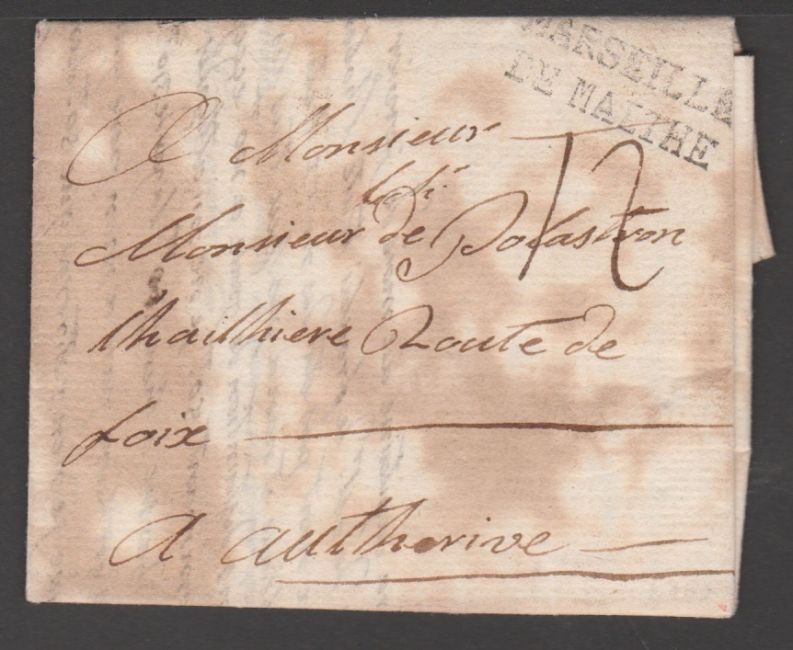 MARSEILLE
DE MALTHE
A Monsieur
12
Monsieur de Polastron
Lhailhiere Route de
foix
a autherive